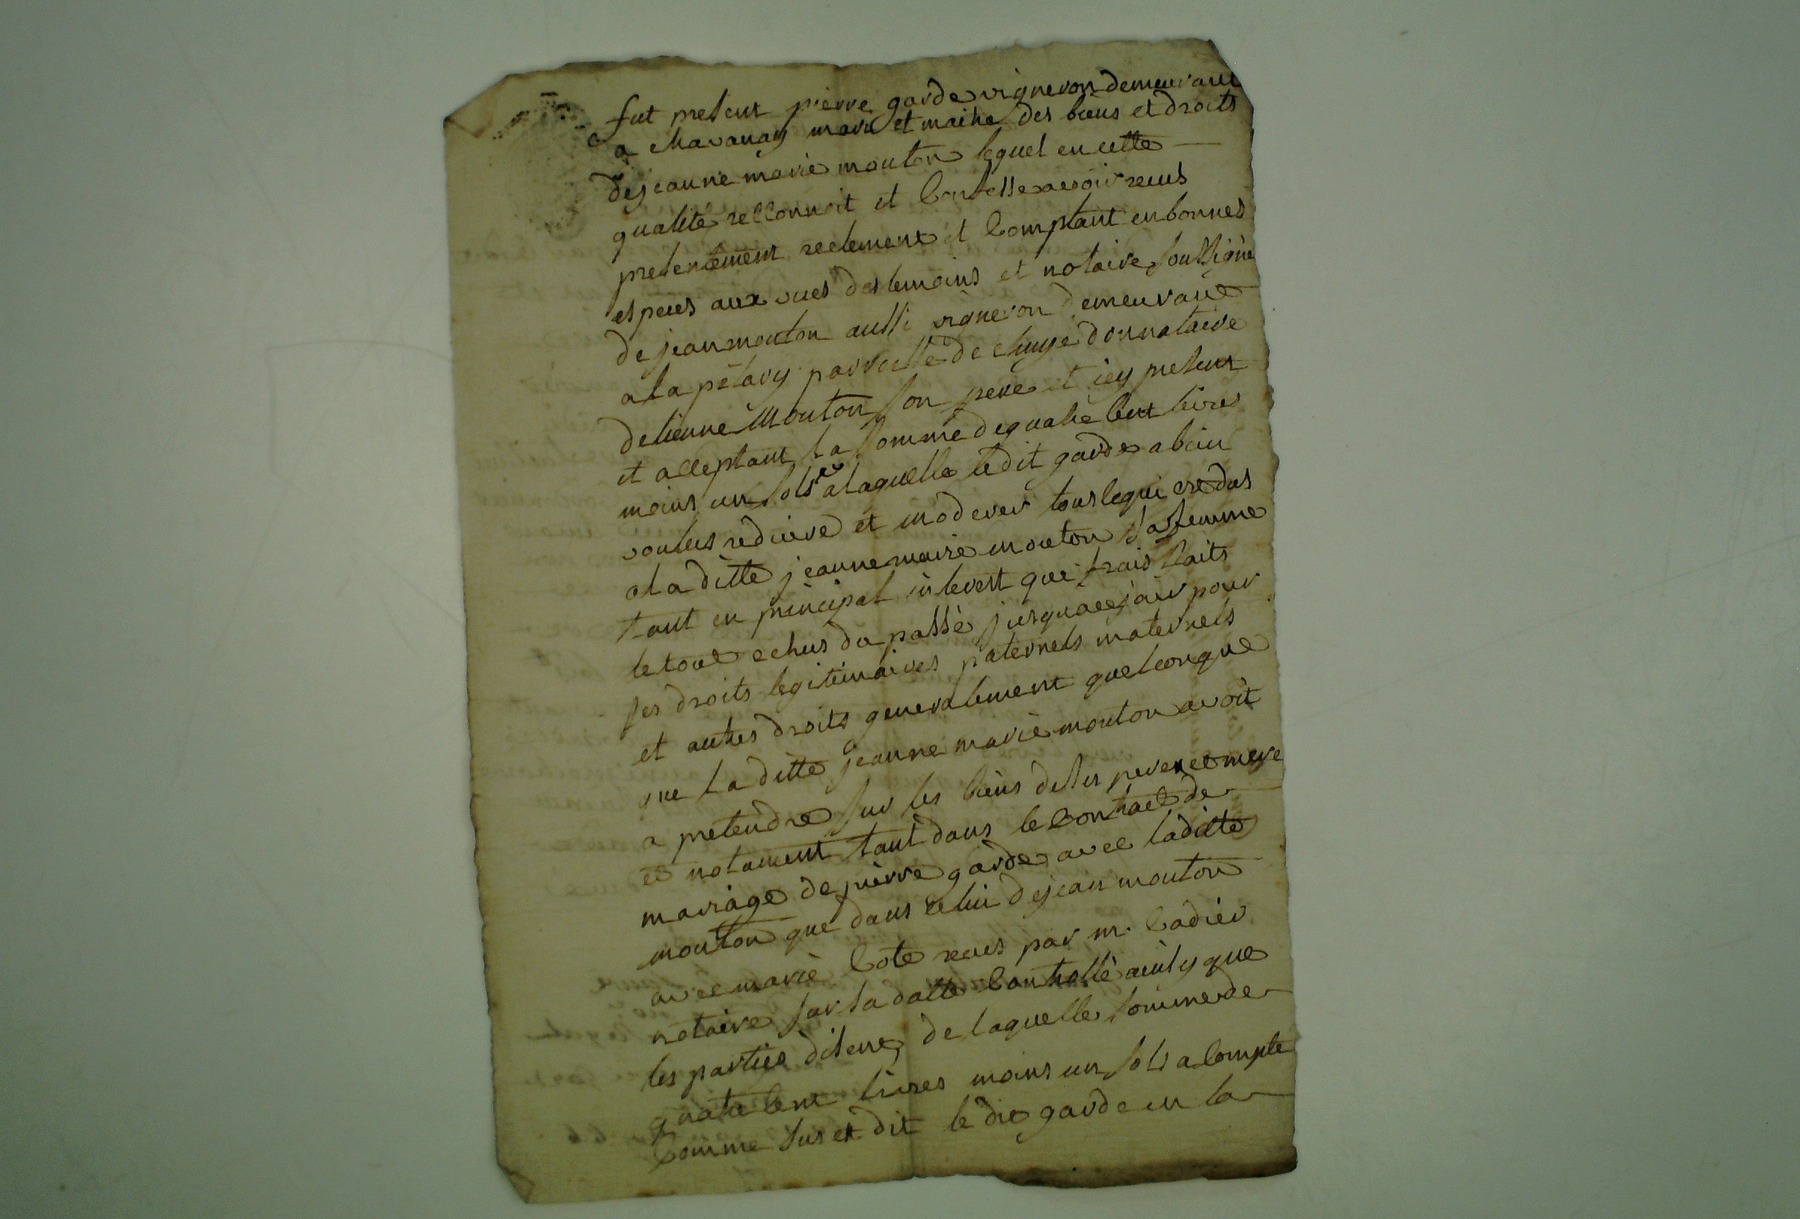 fut present pierre garde vigneron demeurant
a chavanay mari et maitre des biens et droits
de jeanne marie mouton lequel en cette
qualité reconnoit et confesse avoir reçus
presentement reelement et comptant en bonnes
especes aux vues des temoins et notaire soussigné
de jean mouton aussi vigneron demeurant
a la pelavy parroisse de chuye donnataire
detienne Mouton son pere et icy present
et acceptant la somme de quatre cent livres
moins un sols a laquelle ledit garde a bien
voulus reduire et moderer tous ce qui est dus
a la ditte jeanne marie mouton sa femme
tant en principal interest que frais faits
le tout echus du passé jusqua ce jour pour
ses droits legitimaires paternels maternels
et autres droits generalement quelconque
que la ditte jeanne marie mouton avoit
a pretendre sur les biens de ses pere et mere
et notament tant dans le contract de
mariage de pierre garde avec la ditte
mouton que dans celui de jean mouton
avec marie Cote reçus par m. Cadier
notaire sur sa datte controllé ainsy que
les parties disent, de laquelle somme de
quatre cent livres moins un sols a compte
comme sus est dit le dit garde en la